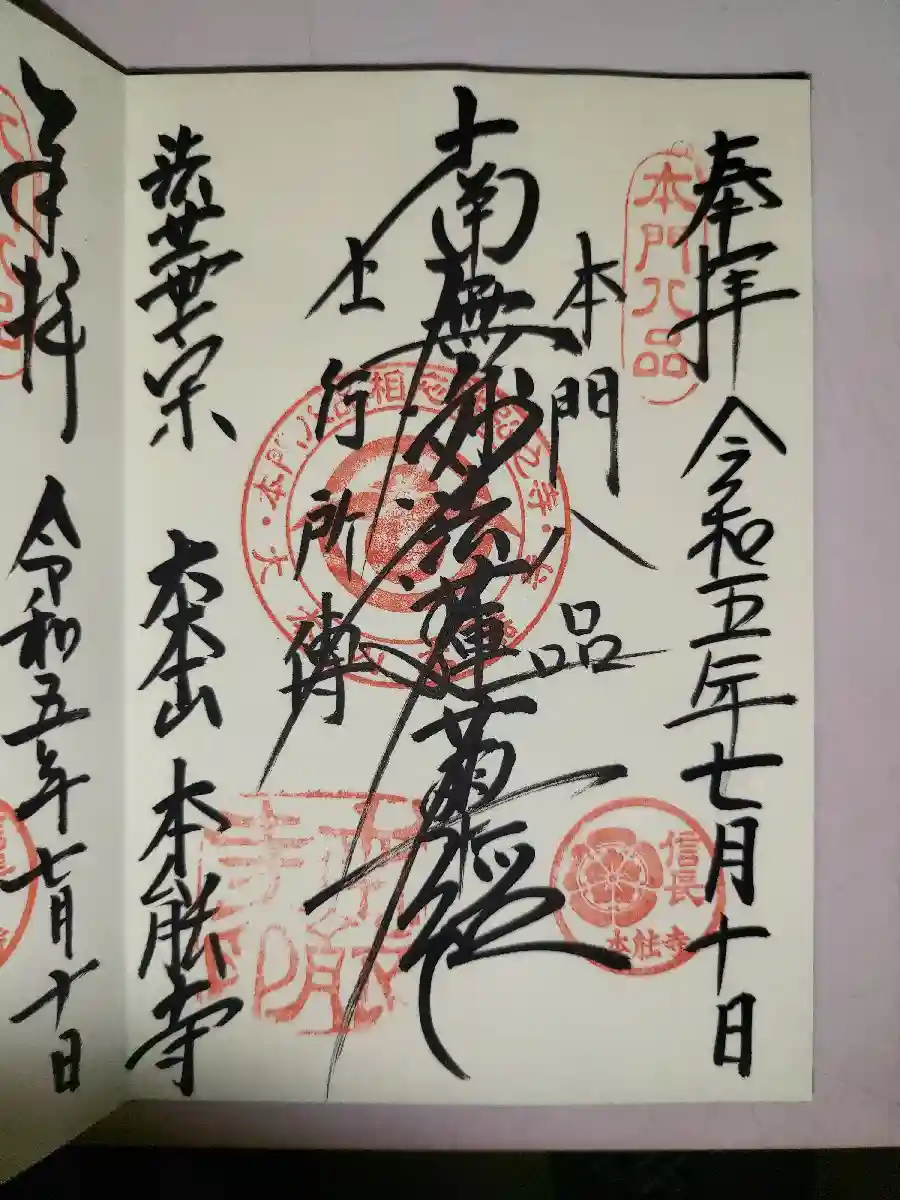 奉拝 令和五年七月十日
本門八品
本門八品
南無妙法蓮華経
上行所傳
信長
本能寺
法華宗 大本山 本能寺
奉拝 令和五年七月十日